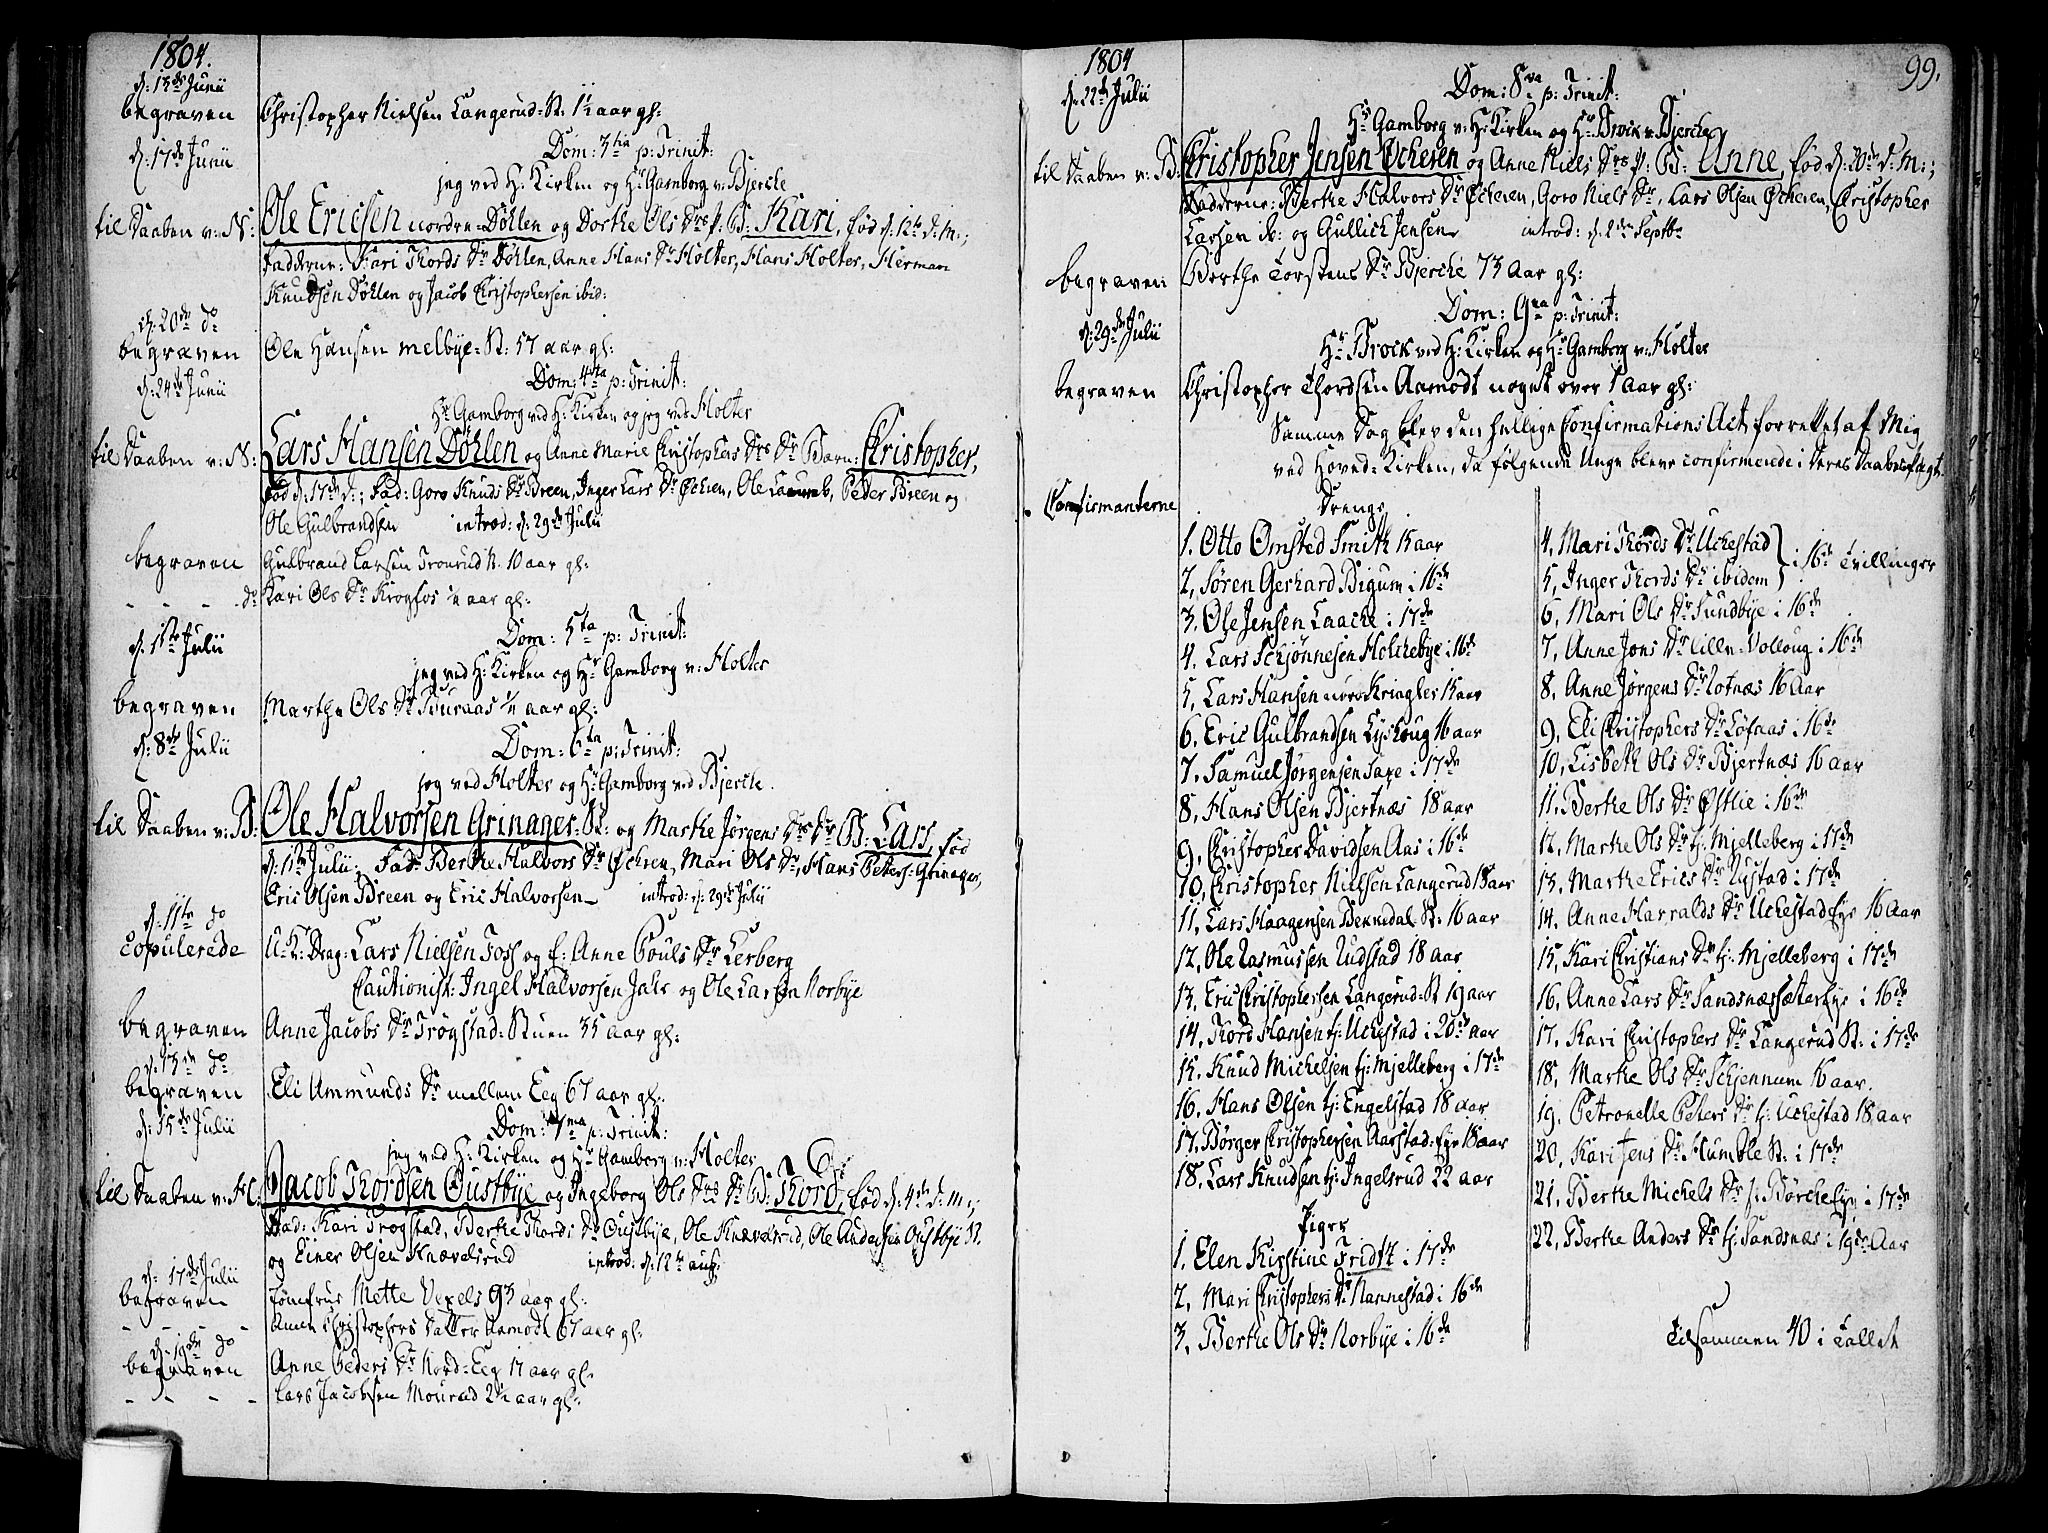 1804.
d: 13de Junii
begraven Christopher Nielsen Langerud-St. 1½ aar gl:
Dom: 3tia p: Trinit:
d: 17de Junii
jeg ved H: Kirken og Hr Gamborg v: Bjercke
til Daaben v: N: Ole Ericsen nordre-Döhlen og Dorthe Ols Drs P: B: Kari, fød d: 12te d: M:;
Fadderne: Kari Thords Dr Döhlen, Anne Hans Dr Holter, Hans Holter, Herman
Knudsen Döhlen og Jacob Christophersen ibid:
d: 20de do
begraven Ole Hansen Melbye-St: 57 aar gl:
Dom: 4ta p: Trinit:
d: 24de Junii
Hr Gamborg ved H: Kirken og jeg ved Holter
til Daaben v: N: Lars Hansen Döhlen og Anne Marie Christophers Drs Barn: Christopher,
fød d: 17de d:; Fad: Goro Knuds Dr Breen, Inger Lars Dr Øchren, Ole, Peder Breen og
Ole Gulbrandsen introd: d: 29de Julii
begraven Gulbrand Larsen Tronrud 10 aar gl:
- - - - do Kari Ols Dr Krogfos ½ aar gl:
Dom: 5ta p: Trinit:
d: 1ste Julii
jeg ved H: Kirken og Hr Gamborg v: Holter
begraven Marthe Ols Dr Buraas aar gl:
d: 8de Julii
Dom: 6ta p: Trinit:
jeg ved Holter og Hr Gamborg ved Bjercke.
til Daaben v: B: Ole Halvorsen Grinager-St: og Marthe Jørgens Drs B: Lars, fød
d: 1ste Julii; Fad: Berthe Halvors Dr Øchren, Mari Ols Dr, Hans Peters: Grinager,
Eric Olsen Breen og Eric Halvorsen introd: d: 29de Julii
d: 11te do
copulerede U: K: Drag: Lars Nielsen Foss og P: Anne Pouls Dr Lerberg
Cautionist: Ingel Halvorsen Jahr og Ole Larsen Norbye
begraven Anne Jacobs Dr Trögstad-Stuen 35 aar gl:
d: 13de do
begraven Eli Ammunds Dr mellem Eeg 67 aar gl:
d: 15de Julii
Dom: 7ma p: Trinit:
jeg ved H: Kirken og Hr Gamborg v: Holter
til Daaben v: H: Jacob Thordsen Oustbye og Ingeborg Ols Drs B: Thord, fød d: 4de d: M:;
Fad: Kari Trogstad, Berthe Thords Dr Oustbye, Ole Knævelsrud, Ole Andersen Oustbye St.
og Einer Olsen Knævelsrud introd: d: 12te aug:
d: 17de Julii
begraven Jomfrue Mette Vexels 93 aar gl:
- - - - Anne Christophers Datter Aamodt 67 aar gl:
d: 19de do
begraven Anne Peders Dr Nord-Eeg 17 aar gl.
- - - - Lars Jacobsen Mourud 2½ aar gl:
99.
1804
d: 22de Julii
Dom: 8va p: Trinit:
Hr Gamborg v: H: Kirken og Hr Brock v: Bjercke
til Daaben v: B: Christopher Jensen Øcheren og Anne Niels Drs P: B: Anne, fød d: 20de d: M:;
Fadderne: Berthe Halvors Dr Øcheren, Goro Niels Dr, Lars Olsen Øcheren, Christopher
Larsen ib: og Gullich Jensen introd: d: 2den Septb:
begraven Berthe Torstens Dr Bjercke 73 aar gl:
Dom: 9na p: Trinit:
d: 29de Julii
Hr Brock ved H: Kirken og Hr Gamborg v: Holter
begraven Christopher Thordsen Aamodt noget over 1 aar gl:
Samme Dag blev den hellige Confirmations Act forrettet af Mig
ved Hoved-Kirken, da følgende Unge bleve confirmerede i deres Daabespagt.
Confirmanterne
Drenge
1. Otto Omsted Smith 15 aar
2, Søren Gerhard Bigum i 16de
3, Ole Jensen Laache i 17de
4. Lars Schjönnesen Holchebye i 16de
5, Lars Hansen nørd Kringler 15 aar
6, Eric Gulbrandsen Lyshoug 16 aar
7, Samuel Jörgensen Saxe i 17de
8, Hans Olsen Bjertnæs 18 aar
9, Christopher Davidsen Aas i 16de
10, Christopher Nielsen Langerud 15 aar
11, Lars Haagensen Bekkedal-St: 16 aar
12, Ole Rasmussen Rudstad 18 aar
13, Eric Christophersen Langerud-St 19 aar
14, Thord Hansen tj: Uchestad i 20de aar
15, Knud Michelsen tj: Mjelleberg i 17de
16, Hans Olsen tj: Engelstad 18 aar
17, Börger Christophersen Aarstad-Eye 18 aar
18, Lars Knudsen tj: Ingelsrud 22 aar
Piger
1. Elen Kirstine Fridsz i 17de
2, Mari Christophers Dr Nannestad i 16de
3, Berthe Ols Dr Norbye i 16de
4, Mari Thords Dr Uchestad
5, Inger Thords Dr ibidem } i 16de Tvillinger
6, Mari Ols Dr Sundbye i 16de
7, Anne Jons Dr lille-Volloug i 16de
8, Anne Jörgens Dr Rotnæs 16 aar
9, Eli Christophers Dr Löfaas i 16de
10, Lisbeth Ols Dr Bjertnæs 16 aar
11, Berthe Ols Dr Østlie i 16de
12, Marthe Ols Dr tj: Mjelleberg i 17de
13, Marthe Erics Dr Rustad i 17de
14, Anne Harralds Dr Uchestad Eye 16 aar
15, Kari Christians Dr tj: Mjelleberg i 17de
16, Anne Lars Dr Sandsnæssæter Eye i 16de
17, Kari Christophers Dr Langerud St: i 17de
18, Marthe Ols Dr Schjennum 16 aar.
19, Petronelle Peters Dr tj: Uchestad 18 aar
20, Kari Jens Dr Humble St: i 17de
21, Berthe Michels Dr Börche Eye i 17de
22, Berthe Anders Dr tj: Sandsnæs i 19de Aar
Tilsammen 40 i Tallet